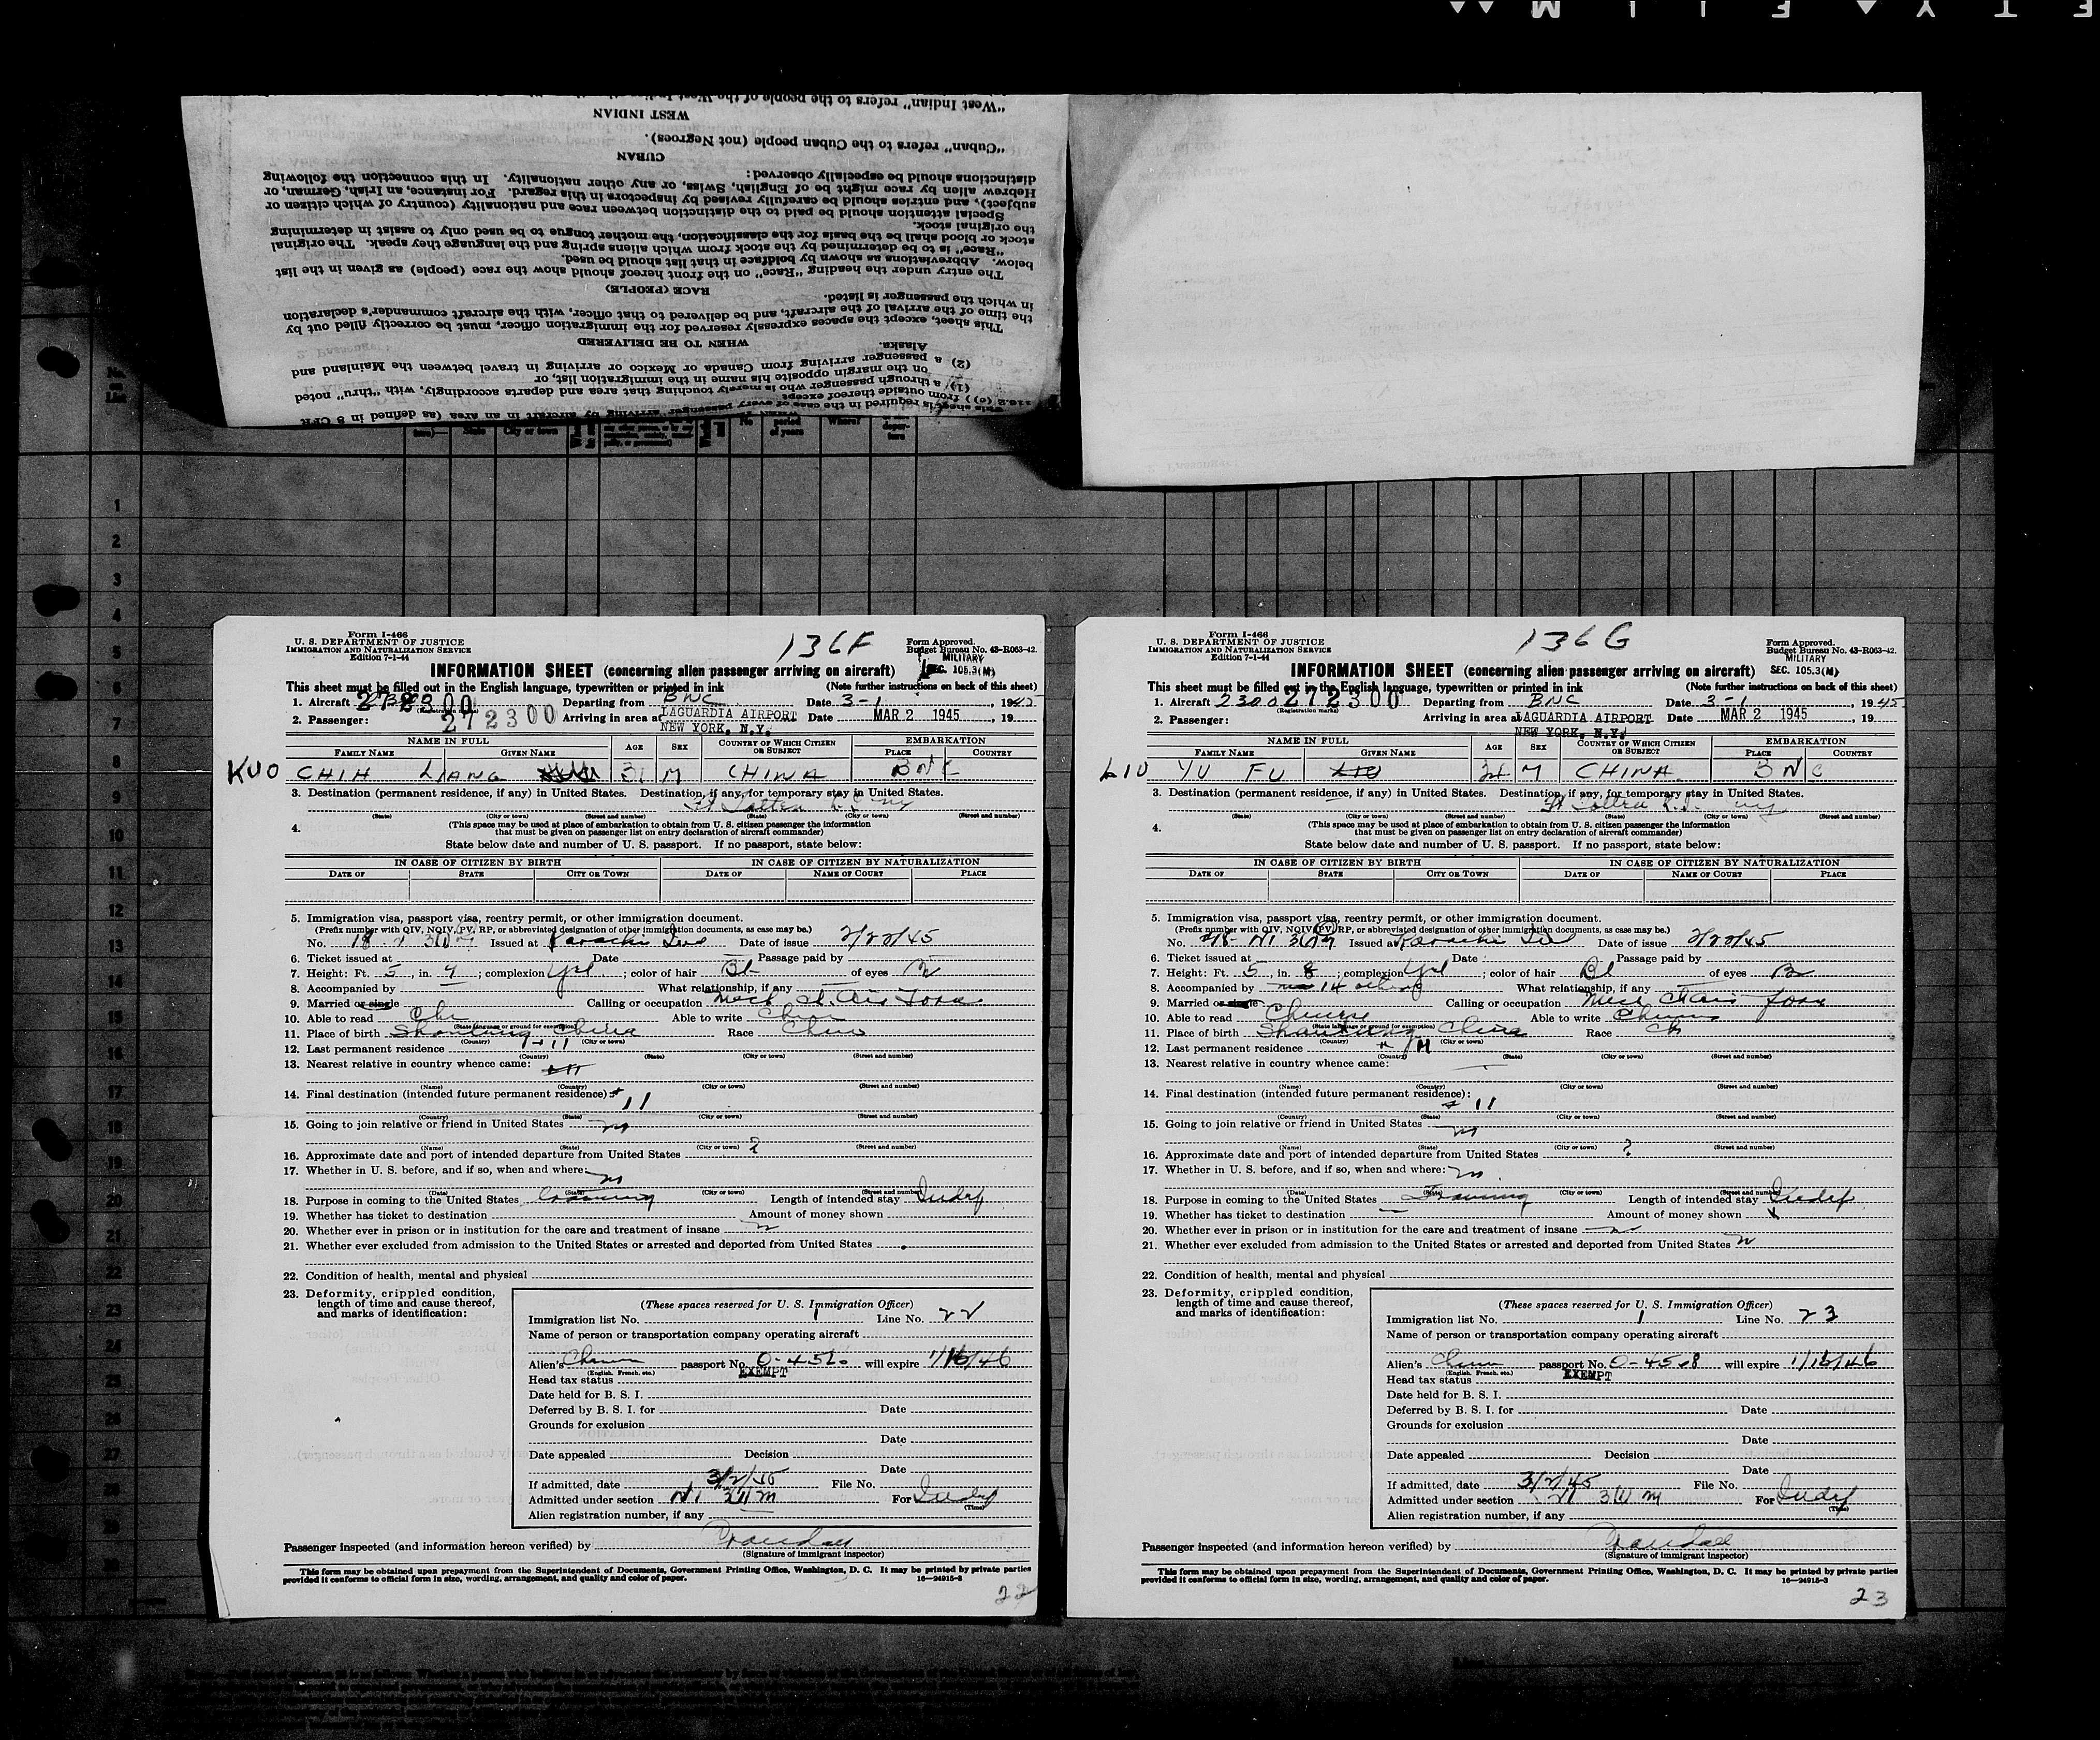 "West Indian" refers to the people of the West Indies
WEST INDIAN
"Cuban" refers to the Cuban people (not Negroes).
CUBAN
distinctions should be especially observed:
Hebrew alien by race might be of English, Swiss, or any other nationality. In this connection the following
subject), and entries should be carefully revised by inspectors in this regard. For instance, an Irish, German, or
Special attention should be paid to the distinction between race and nationality (country of which citizen or
the original stock.
stock or blood shall be the basis for the classification, the mother tongue to be used only to assist in determining
"Race" is to be determined by the stock from which aliens spring and the language they speak. The original
below. Abbreviations as shown by boldface in that list should be used.
The entry under the heading "Race" on the front hereof should show the race (people) as given in the list
RACE (PEOPLE)
in which the passenger is listed.
the time of the arrival of the aircraft, and be delivered to that officer, with the aircraft commander's declaration
This sheet, except the spaces expressly reserved for the immigration officer, must be correctly filled out by
WHEN TO BE DELIVERED
Alaska.
(2) a passenger arriving from Canada or Mexico or arriving in travel between the Mainland and
on the margin opposite his name in the immigration list, or
(1) a through passenger who is merely touching that area and departs accordingly, with "thru" noted
116.2 (c)) from outside thereof except
This sheet is required in the case of every passenger arriving by aircraft in an area (as defined in 8 CFR
1
2
3
4
5
6
7
8
9
10
11
12
13
14
15
16
17
18
19
20
21
22
23
24
25
26
27
Form I-466
U. S. DEPARTMENT OF JUSTICE
IMMIGRATION AND NATURALIZATION SERVICE
Edition 7-1-44
136F
Form Approved.
Budget Bureau No. 43-R063-42.
MILITARY
SEC. 105.3(M)
INFORMATION SHEET (concerning alien passenger arriving on aircraft)
This sheet must be filled out in the English language, typewritten or printed in ink (Note further instructions on back of this sheet)
1. Aircraft 272300 Departing from BNC Date 3-1, 1945
(Registration marks)
2. Passenger: 272300 Arriving in area at LAGUARDIA AIRPORT NEW YORK, N.Y. Date MAR 2 1945, 19
NAME IN FULL AGE SEX COUNTRY OF WHICH CITIZEN OR SUBJECT EMBARKATION
FAMILY NAME GIVEN NAME PLACE COUNTRY
KUO CHIH LIANG 31 M CHINA BNC
3. Destination (permanent residence, if any) in United States. Destination, if any, for temporary stay in United States.
(State) (City or town) (Street and number) (State) (City or town) (Street and number)
4. (This space may be used at place of embarkation to obtain from U. S. citizen passenger the information
that must be given on passenger list on entry declaration of aircraft commander)
State below date and number of U. S. passport. If no passport, state below:
IN CASE OF CITIZEN BY BIRTH IN CASE OF CITIZEN BY NATURALIZATION
DATE OF STATE CITY OR TOWN DATE OF NAME OF COURT PLACE
5. Immigration visa, passport visa, reentry permit, or other immigration document.
(Prefix number with QIV, NQIV, PV, RP, or abbreviated designation of other immigration documents, as case may be.)
No. Issued at Karachi Ind Date of issue 2/22/45
6. Ticket issued at Date Passage paid by
7. Height: Ft. 5, in. 9; complexion Yel.; color of hair Bl of eyes Br
8. Accompanied by What relationship, if any
9. Married or single Calling or occupation Mech Ch. Air Force
10. Able to read Chi Able to write Chin
(State language or ground for exemption)
11. Place of birth Shantung China Race Chin
(Country) (City or town)
12. Last permanent residence
(Country) (State) (City or town) (Street and number)
13. Nearest relative in country whence came:
(Name) (Country) (City or town) (Street and number)
14. Final destination (intended future permanent residence): # 11
(Country) (State) (City or town) (Street and number)
15. Going to join relative or friend in United States no
(Name) (State) (City or town) (Street and number)
16. Approximate date and port of intended departure from United States ?
17. Whether in U. S. before, and if so, when and where: no
(Date) (State) (City or town) (Street and number)
18. Purpose in coming to the United States Training Length of intended stay Indef
19. Whether has ticket to destination Amount of money shown
20. Whether ever in prison or in institution for the care and treatment of insane n
21. Whether ever excluded from admission to the United States or arrested and deported from United States
22. Condition of health, mental and physical
23. Deformity, crippled condition,
length of time and cause thereof,
and marks of identification:
(These spaces reserved for U. S. Immigration Officer)
Immigration list No. 1 Line No. 22
Name of person or transportation company operating aircraft
Alien's Chinese passport No. will expire 1/16/46
(English, French, etc.)
Head tax status EXEMPT
Date held for B. S. I.
Deferred by B. S. I. for Date
Grounds for exclusion
Date
Date appealed Decision
Date
If admitted, date 3/2/45 File No.
Admitted under section For Indef
(Time)
Alien registration number, if any
Passenger inspected (and information hereon verified) by Crandall
(Signature of immigrant inspector)
This form may be obtained upon prepayment from the Superintendent of Documents, Government Printing Office, Washington, D. C. It may be printed by private parties
provided it conforms to official form in size, wording, arrangement, and quality and color of paper. 16—24915-3
22
Form I-466
U. S. DEPARTMENT OF JUSTICE
IMMIGRATION AND NATURALIZATION SERVICE
Edition 7-1-44
136G
Form Approved.
Budget Bureau No. 43-R063-42.
MILITARY
SEC. 105.3(M)
INFORMATION SHEET (concerning alien passenger arriving on aircraft)
This sheet must be filled out in the English language, typewritten or printed in ink (Note further instructions on back of this sheet)
1. Aircraft 2300 272300 Departing from BNC Date 3-1, 1945
(Registration marks)
2. Passenger: Arriving in area at LAGUARDIA AIRPORT NEW YORK, N.Y. Date MAR 2 1945, 19
NAME IN FULL AGE SEX COUNTRY OF WHICH CITIZEN OR SUBJECT EMBARKATION
FAMILY NAME GIVEN NAME PLACE COUNTRY
LIU YU FU LIU M CHINA BNC
3. Destination (permanent residence, if any) in United States. Destination, if any, for temporary stay in United States.
(State) (City or town) (Street and number) (State) (City or town) (Street and number)
4. (This space may be used at place of embarkation to obtain from U. S. citizen passenger the information
that must be given on passenger list on entry declaration of aircraft commander)
State below date and number of U. S. passport. If no passport, state below:
IN CASE OF CITIZEN BY BIRTH IN CASE OF CITIZEN BY NATURALIZATION
DATE OF STATE CITY OR TOWN DATE OF NAME OF COURT PLACE
5. Immigration visa, passport visa, reentry permit, or other immigration document.
(Prefix number with QIV, NQIV, PV, RP, or abbreviated designation of other immigration documents, as case may be.)
No. Issued at Karachi Ind Date of issue 2/22/45
6. Ticket issued at Date Passage paid by
7. Height: Ft. 5, in. 8; complexion Yel; color of hair Bl of eyes Br
8. Accompanied by 14 others What relationship, if any
9. Married or single Calling or occupation Mech Ch Air Force
10. Able to read Chinese Able to write Chinese
(State language or ground for exemption)
11. Place of birth Shantung China Race Ch
(Country) (City or town)
12. Last permanent residence
(Country) (State) (City or town) (Street and number)
13. Nearest relative in country whence came:
(Name) (Country) (City or town) (Street and number)
14. Final destination (intended future permanent residence): # 11
(Country) (State) (City or town) (Street and number)
15. Going to join relative or friend in United States no
(Name) (State) (City or town) (Street and number)
16. Approximate date and port of intended departure from United States ?
17. Whether in U. S. before, and if so, when and where: no
(Date) (State) (City or town) (Street and number)
18. Purpose in coming to the United States Training Length of intended stay Indef
19. Whether has ticket to destination Amount of money shown
20. Whether ever in prison or in institution for the care and treatment of insane
21. Whether ever excluded from admission to the United States or arrested and deported from United States n
22. Condition of health, mental and physical
23. Deformity, crippled condition,
length of time and cause thereof,
and marks of identification:
(These spaces reserved for U. S. Immigration Officer)
Immigration list No. 1 Line No. 23
Name of person or transportation company operating aircraft
Alien's Chin passport No. O-4568 will expire 1/16/46
(English, French, etc.)
Head tax status EXEMPT
Date held for B. S. I.
Deferred by B. S. I. for Date
Grounds for exclusion
Date
Date appealed Decision
Date
If admitted, date 3/2/45 File No.
Admitted under section For Indef
(Time)
Alien registration number, if any
Passenger inspected (and information hereon verified) by Crandall
(Signature of immigrant inspector)
This form may be obtained upon prepayment from the Superintendent of Documents, Government Printing Office, Washington, D. C. It may be printed by private parties
provided it conforms to official form in size, wording, arrangement, and quality and color of paper. 16—24915-3
23